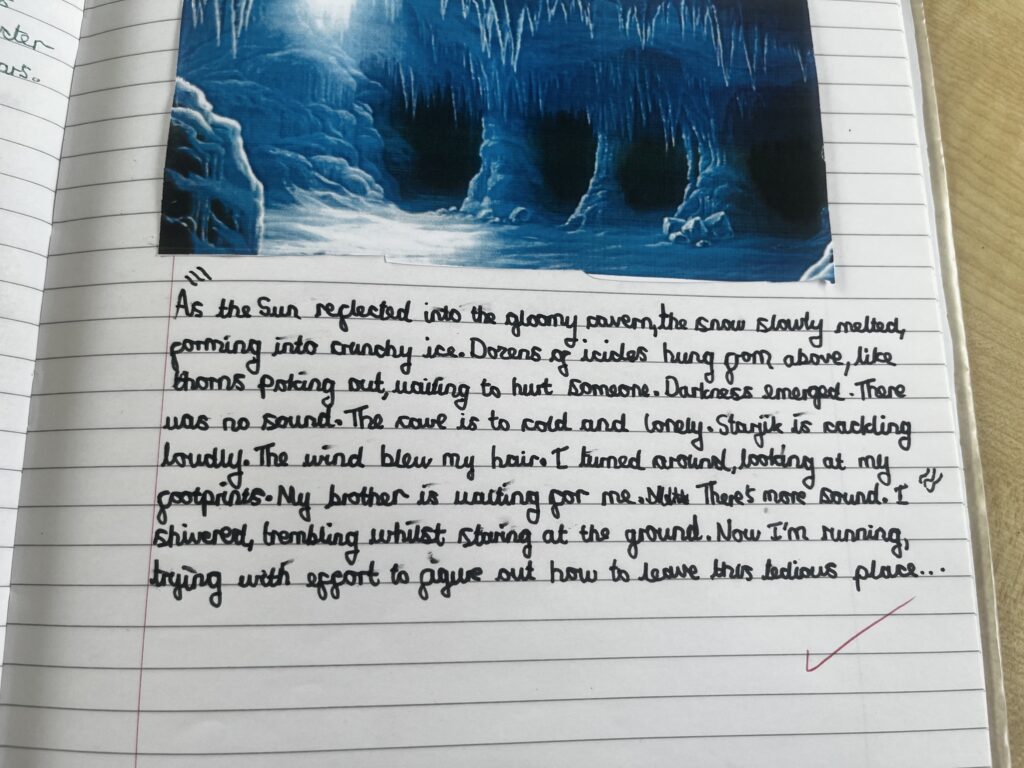 cter
ars.
As the Sun reflected into the gloomy cavern, the snow slowly melted,
forming into crunchy ice. Dozens of icicles hung from above, like
thorns poking out, waiting to hurt someone. Darkness emerged. There
was no sound. The cave is to cold and lonely. Starjik is cackling
loudly. The wind blew my hair. I turned around, looking at my
footprints. My brother is waiting for me. There's more sound. I
shivered, trembling whilst staring at the ground. Now I'm running,
trying with effort to figure out how to leave this tedious place...